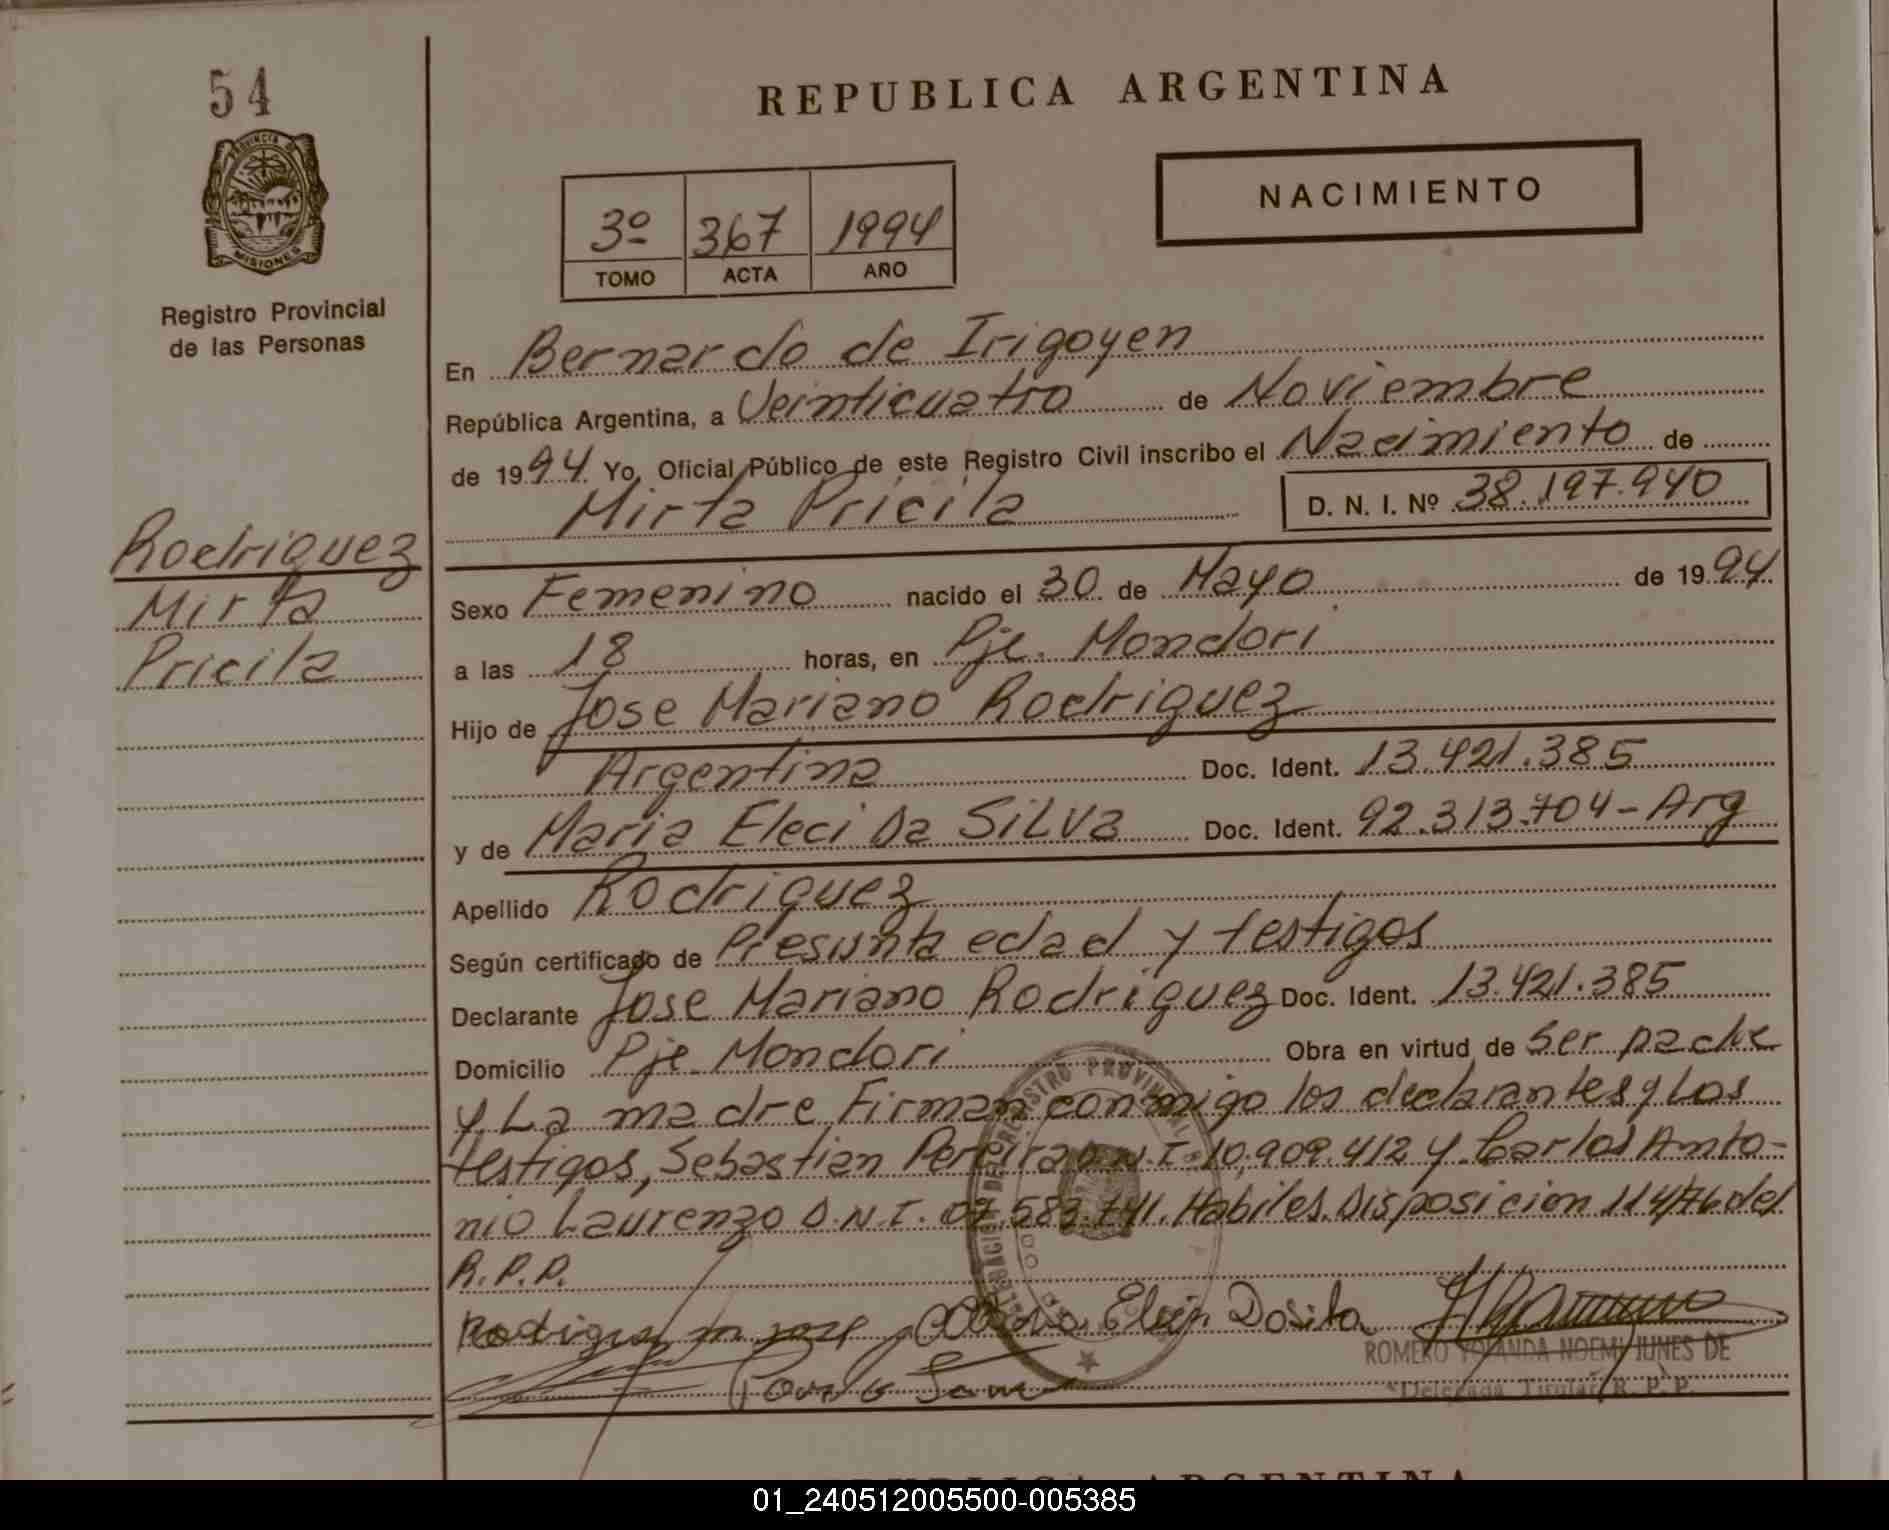 54
REPUBLICA ARGENTINA
PROVINCIA DE
MISIONES
Registro Provincial
de las Personas
NACIMIENTO
3º 367 1994
TOMO ACTA AÑO
En Bernardo de Irigoyen
República Argentina, a Veinticuatro de Noviembre
de 1994 Yo, Oficial Público de este Registro Civil inscribo el Nacimiento de
Mirta Pricila D. N. I. Nº 38.197.940
Rodriguez
Mirta
Pricila
Sexo Femenino nacido el 30 de Mayo de 1994
a las 18 horas, en Pje. Mondori
Hijo de Jose Mariano Rodriguez
Argentina Doc. Ident. 13.421.385
y de Maria Eleci Da SiLVa Doc. Ident. 92.313.704 - Arg
Apellido Rodriguez
Según certificado de Presunta edad y testigos
Declarante Jose Mariano Rodriguez Doc. Ident. 13.421.385
Domicilio Pje Mondori Obra en virtud de ser padre
y La madre Firman conmigo los declarantes y Los
testigos, Sebastian Pereira D.N.I. 10.909.412 y Carlos Anto-
nio Laurenzo D.N.I. 07.583.741. Habiles. Disposicion 114/76 del
R.P.P.
ROMERO YOLANDA NOEMI JUNES DE
Delegada Titular R. P. P.
REPUBLICA ARGENTINA
01_240512005500-005385